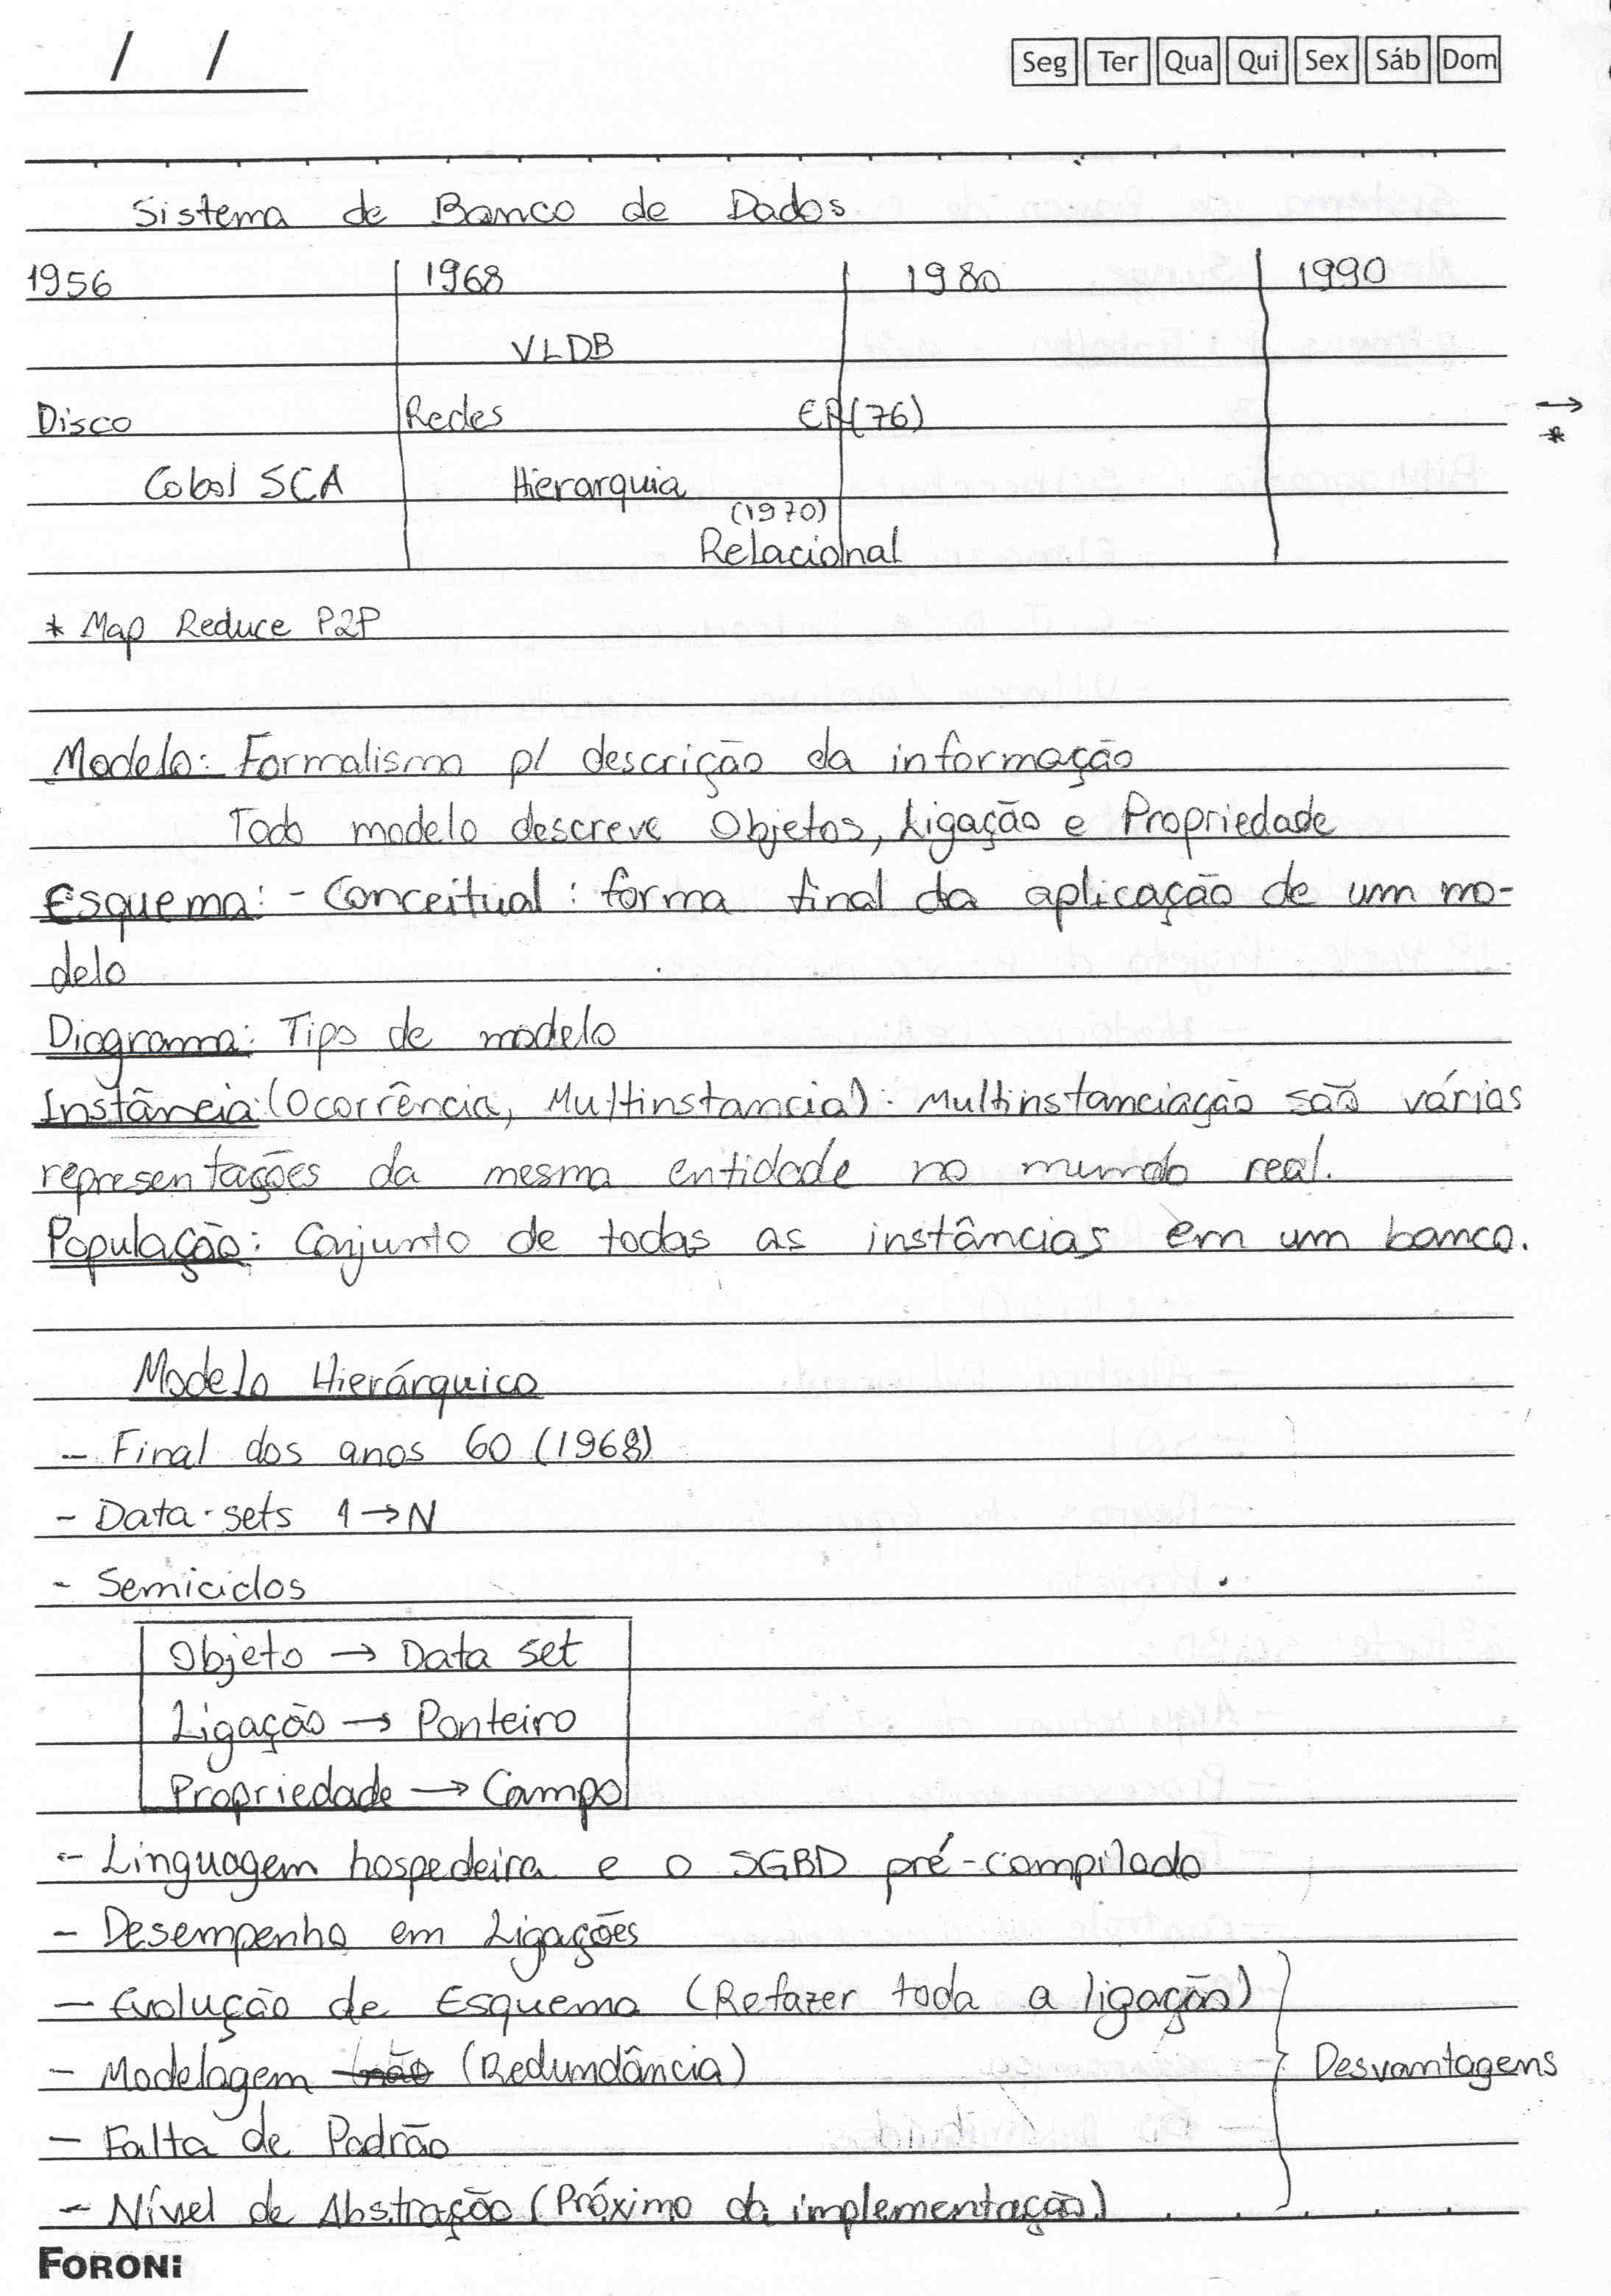 / /
Seg Ter Qua Qui Sex Sáb Dom
Sistema de Banco de Dados
1956 1968 1980 1990
VLDB
Disco Redes ER(76) →
*
Cobol SCA Hierarquia
(1970)
Relacional
* Map Reduce P2P
Modelo: Formalismo p/ descrição da informação
Todo modelo descreve Objetos, Ligação e Propriedade
Esquema: - Conceitual: forma final da aplicação de um mo-
delo
Diagrama: Tips de modelo
Instância: (Ocorrência, Multinstancia). Multinstanciação são várias
representações da mesma entidade no mundo real.
População: Conjunto de todas as instâncias em um banco.
Modelo Hierárquico
- Final dos anos 60 (1968)
- Data-sets 1→N
- Semiciclos
Objeto → Data set
Ligação → Ponteiro
Propriedade → Campo
- Linguagem hospedeira e o SGBD pré-compilado
- Desempenho em Ligações
- Evolução de Esquema (Refazer toda a ligação)
- Modelagem (Redundância) Desvantagens
- Falta de Padrão
- Nível de Abstração (Próximo da implementação)
FORONI